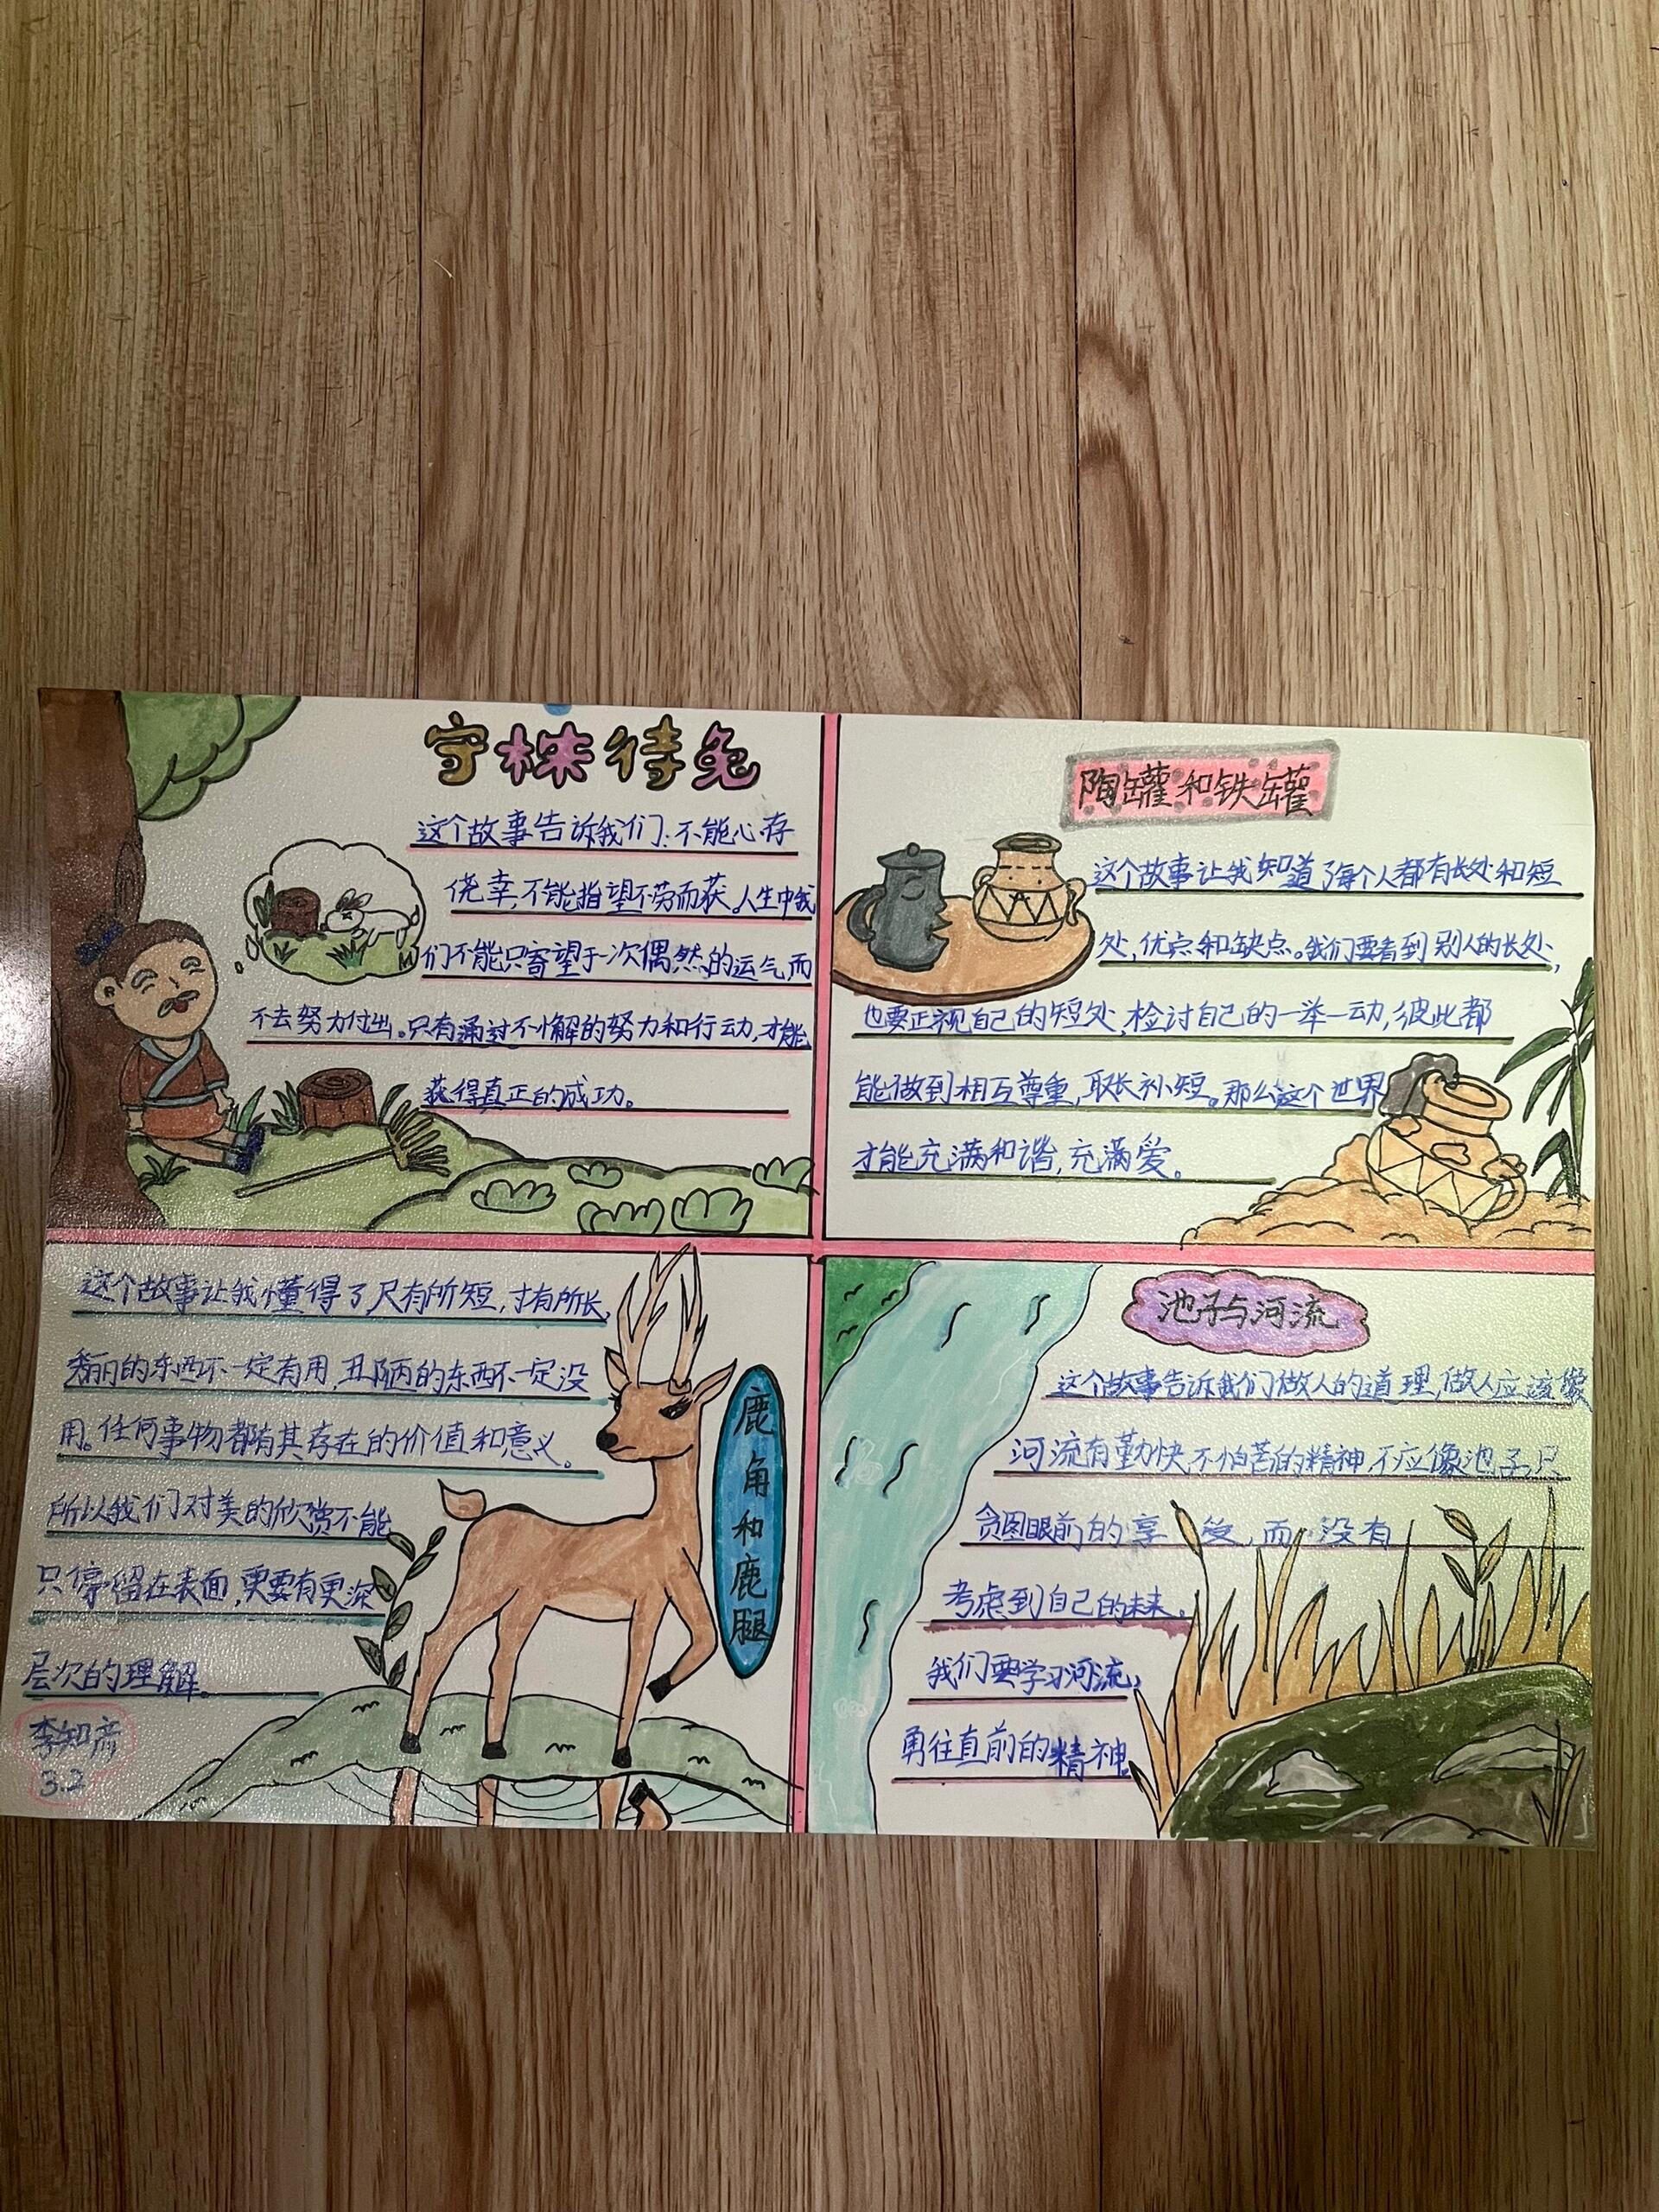 守株待兔
这个故事告诉我们:不能心存
侥幸,不能指望不劳而获。人生中我
们不能只寄望于一次偶然的运气而
不去努力付出。只有通过不懈的努力和行动,才能
获得真正的成功。
陶罐和铁罐
这个故事让我知道了每个人都有长处和短
处,优点和缺点。我们要看到别人的长处,
也要正视自己的短处,检讨自己的一举一动,彼此都
能做到相互尊重,取长补短。那么这个世界
才能充满和谐,充满爱。
这个故事让我懂得了尺有所短,寸有所长,
美丽的东西不一定有用,丑陋的东西不一定没
用。任何事物都有其存在的价值和意义。
所以我们对美的欣赏不能
只停留在表面,更要有更深
层次的理解。
鹿角和鹿腿
李知彦
3.2
池子与河流
这个故事告诉我们做人的道理,做人应该像
河流有勤快,不怕苦的精神,不应像池子,只
贪图眼前的享受,而没有
考虑到自己的未来。
我们要学习河流,
勇往直前的精神。